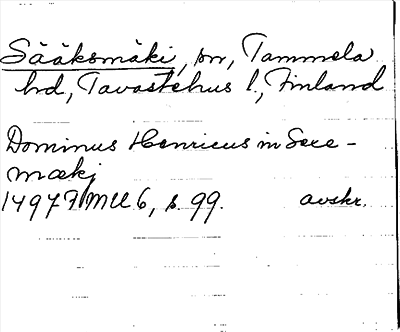 Sääksmäki, sn, Tammela
hd, Tavastehus l., Finland
Dominus Henricus in Sexe-
mækj
1497 FMU 6, s. 99. avskr.